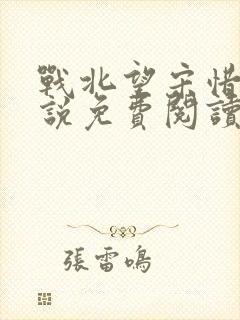 戰北望宋惜
說免費閱讀
張雷鳴